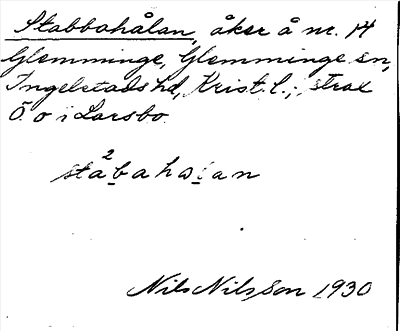 Stabbahålan, åker å nr. 14
Glemminge, Glemminge sn,
Ingelstads hd, Krist. l.; strax
Ö. o i Larsbo.
sta²bahalan
Nils Nilsson 1930